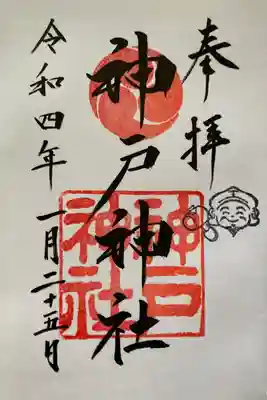 奉拝
神戸神社
神戸
神社
令和四年
一月二十五日